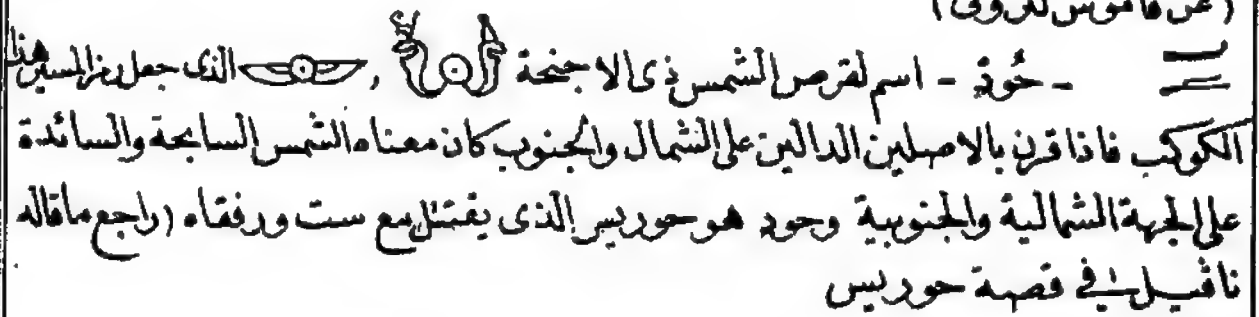 (عن قاموس لدروى)
- حُود - اسم لقرص الشمس ذى الاجنحة , الذى جعل رمزا لسير هذا
الكوكب فاذا قرن بالاصلين الدالين على الشمال والجنوب كان معناه الشمس السابحة والسائدة
على الجهة الشمالية والجنوبية وحود هو حوريس الذى يقتتل مع ست ورفقاه (راجع ماقاله
ناڤيل فى قصة حوريس